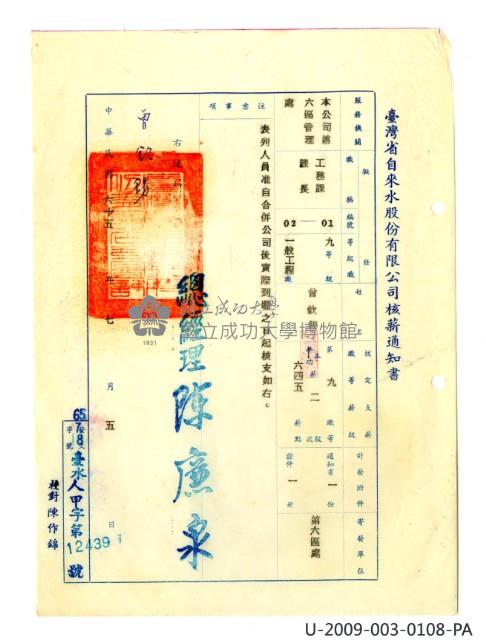 臺灣省自來水股份有限公司核薪通知書
服務機關
職稱
編號
等級
職
姓名
擬任
核定支薪
職等薪級
計發附件
寄發單位
本公司第六區管理處
工務課課長
01
02
九等
一般工程
第九職等
二
六四五
薪點
通知書一份
證件一冊
第六區處
注意事項
表列人員准自合併公司後實際到職之日起核支如右。
右通知
曾
總經理陳廉泉
中華民國六十五年七月五日
65 7 8
臺水人甲字第12439號
校對陳作錦
國立成功大學
國立成功大學博物館
1931
U-2009-003-0108-PA